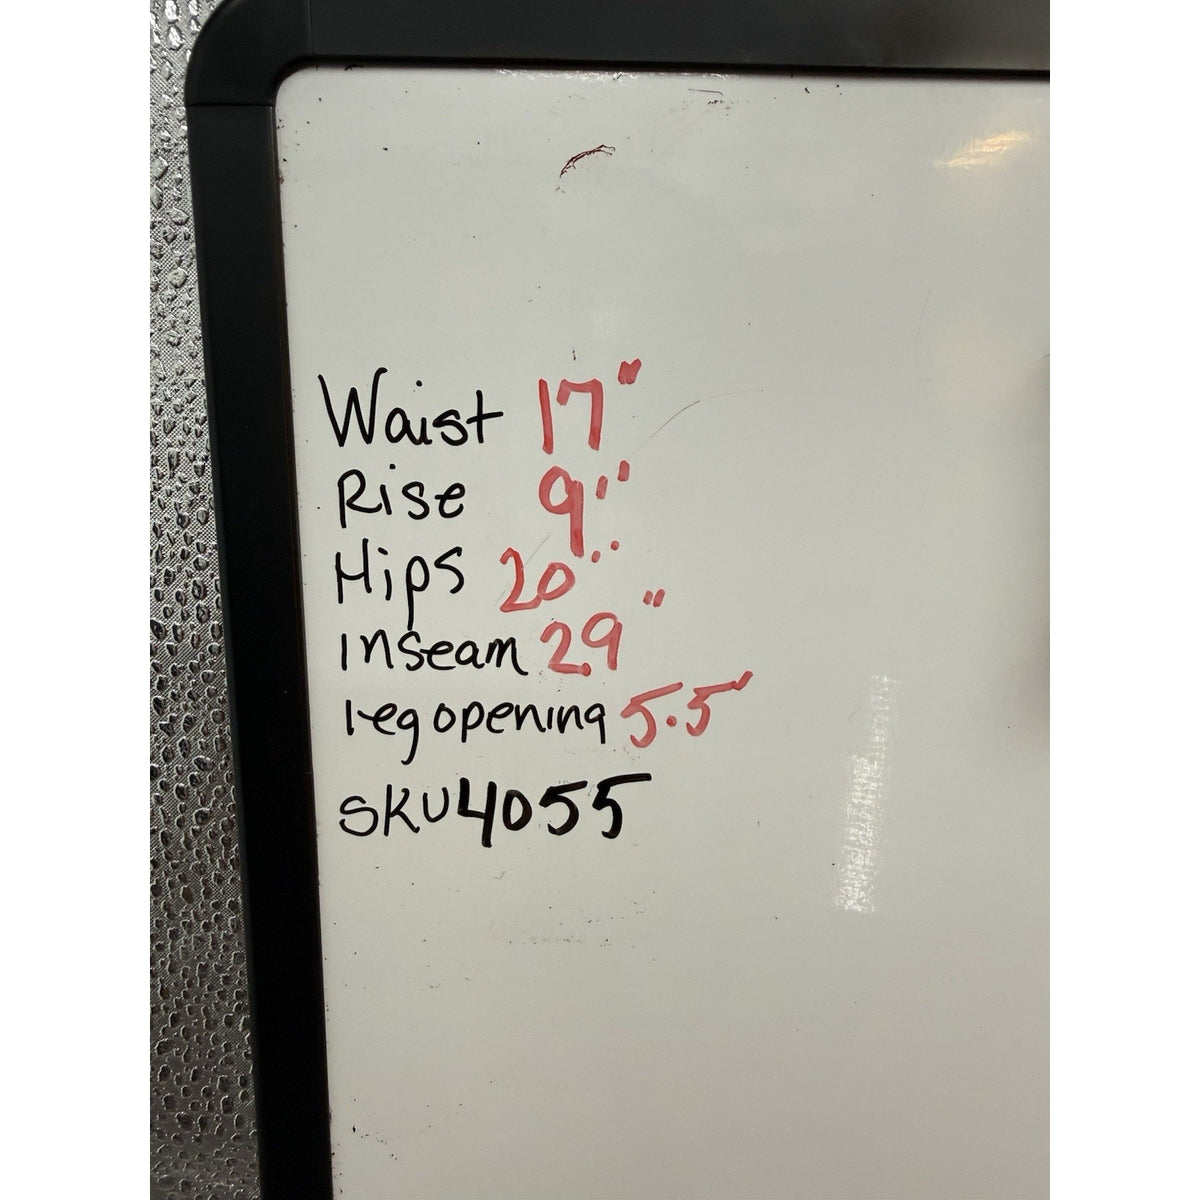 Waist 17"
Rise 9"
Hips 20"
Inseam 29"
leg opening 5.5"
SKU 4055